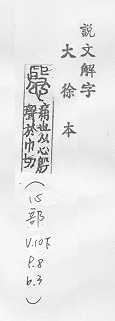 說文解字
大徐本
慇
痛也从心殷
聲於巾切
(心部
V.10下
P.8
b.3)